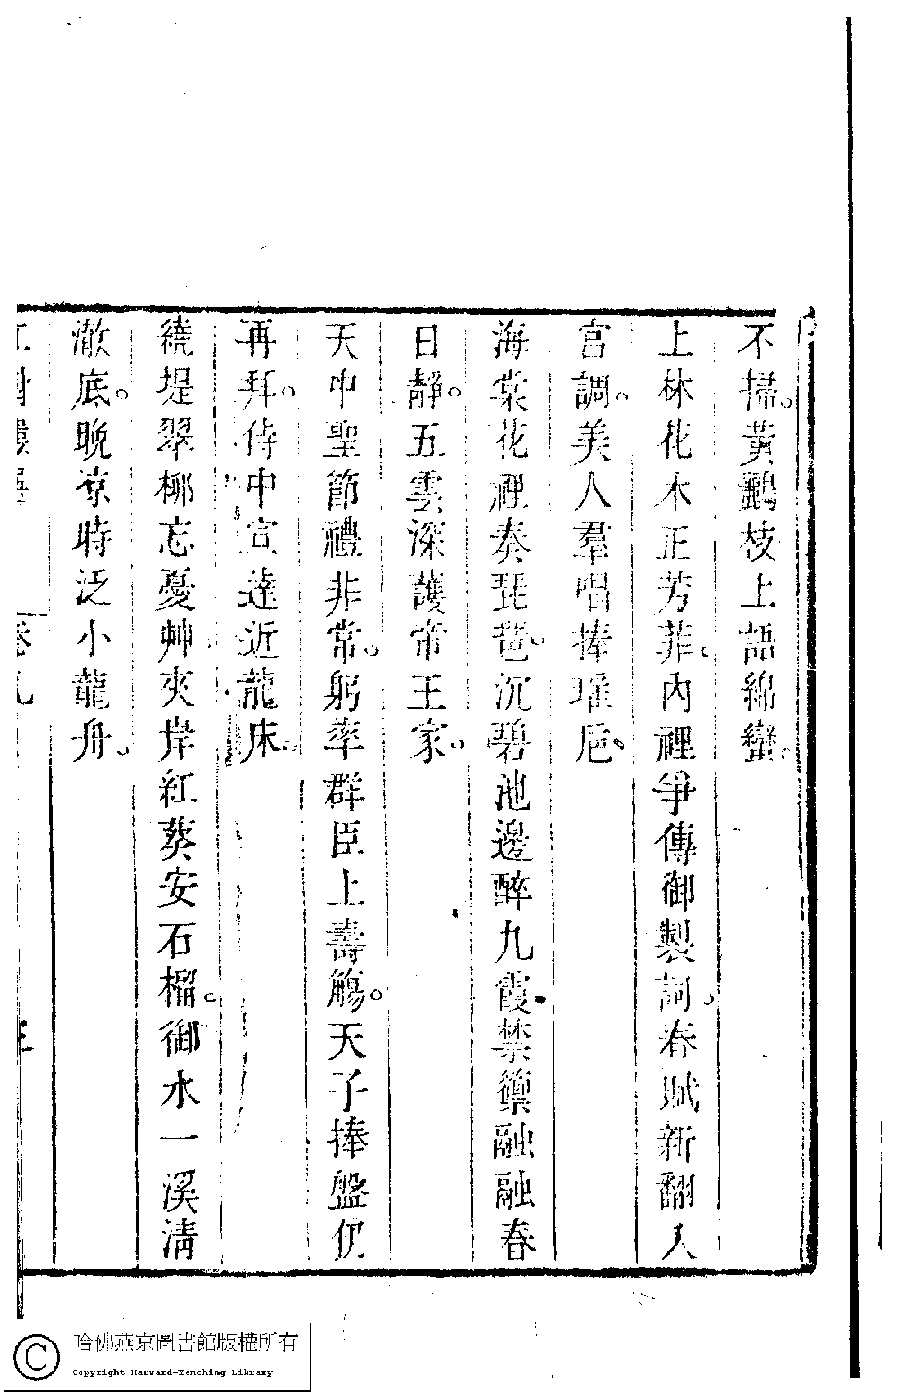 不掃黃鸝枝上語綿蠻
上林花木正芳菲內裡爭傳御製詞春賦新翻入
宮調美人羣唱捧瑤卮
海棠花裡奏琵琶沉碧池邊醉九霞禁籞融融春
日靜五雲深護帝王家
天中聖節禮非常躬率群臣上壽觴天子捧盤仍
再拜侍中宣達近龍床
繞堤翠柳忘憂艸夾岸紅葵安石榴御水一溪清
澈底晚京時泛小龍舟
卷九
哈佛燕京圖書館版權所有
Copyright Harvard-Yenching Library